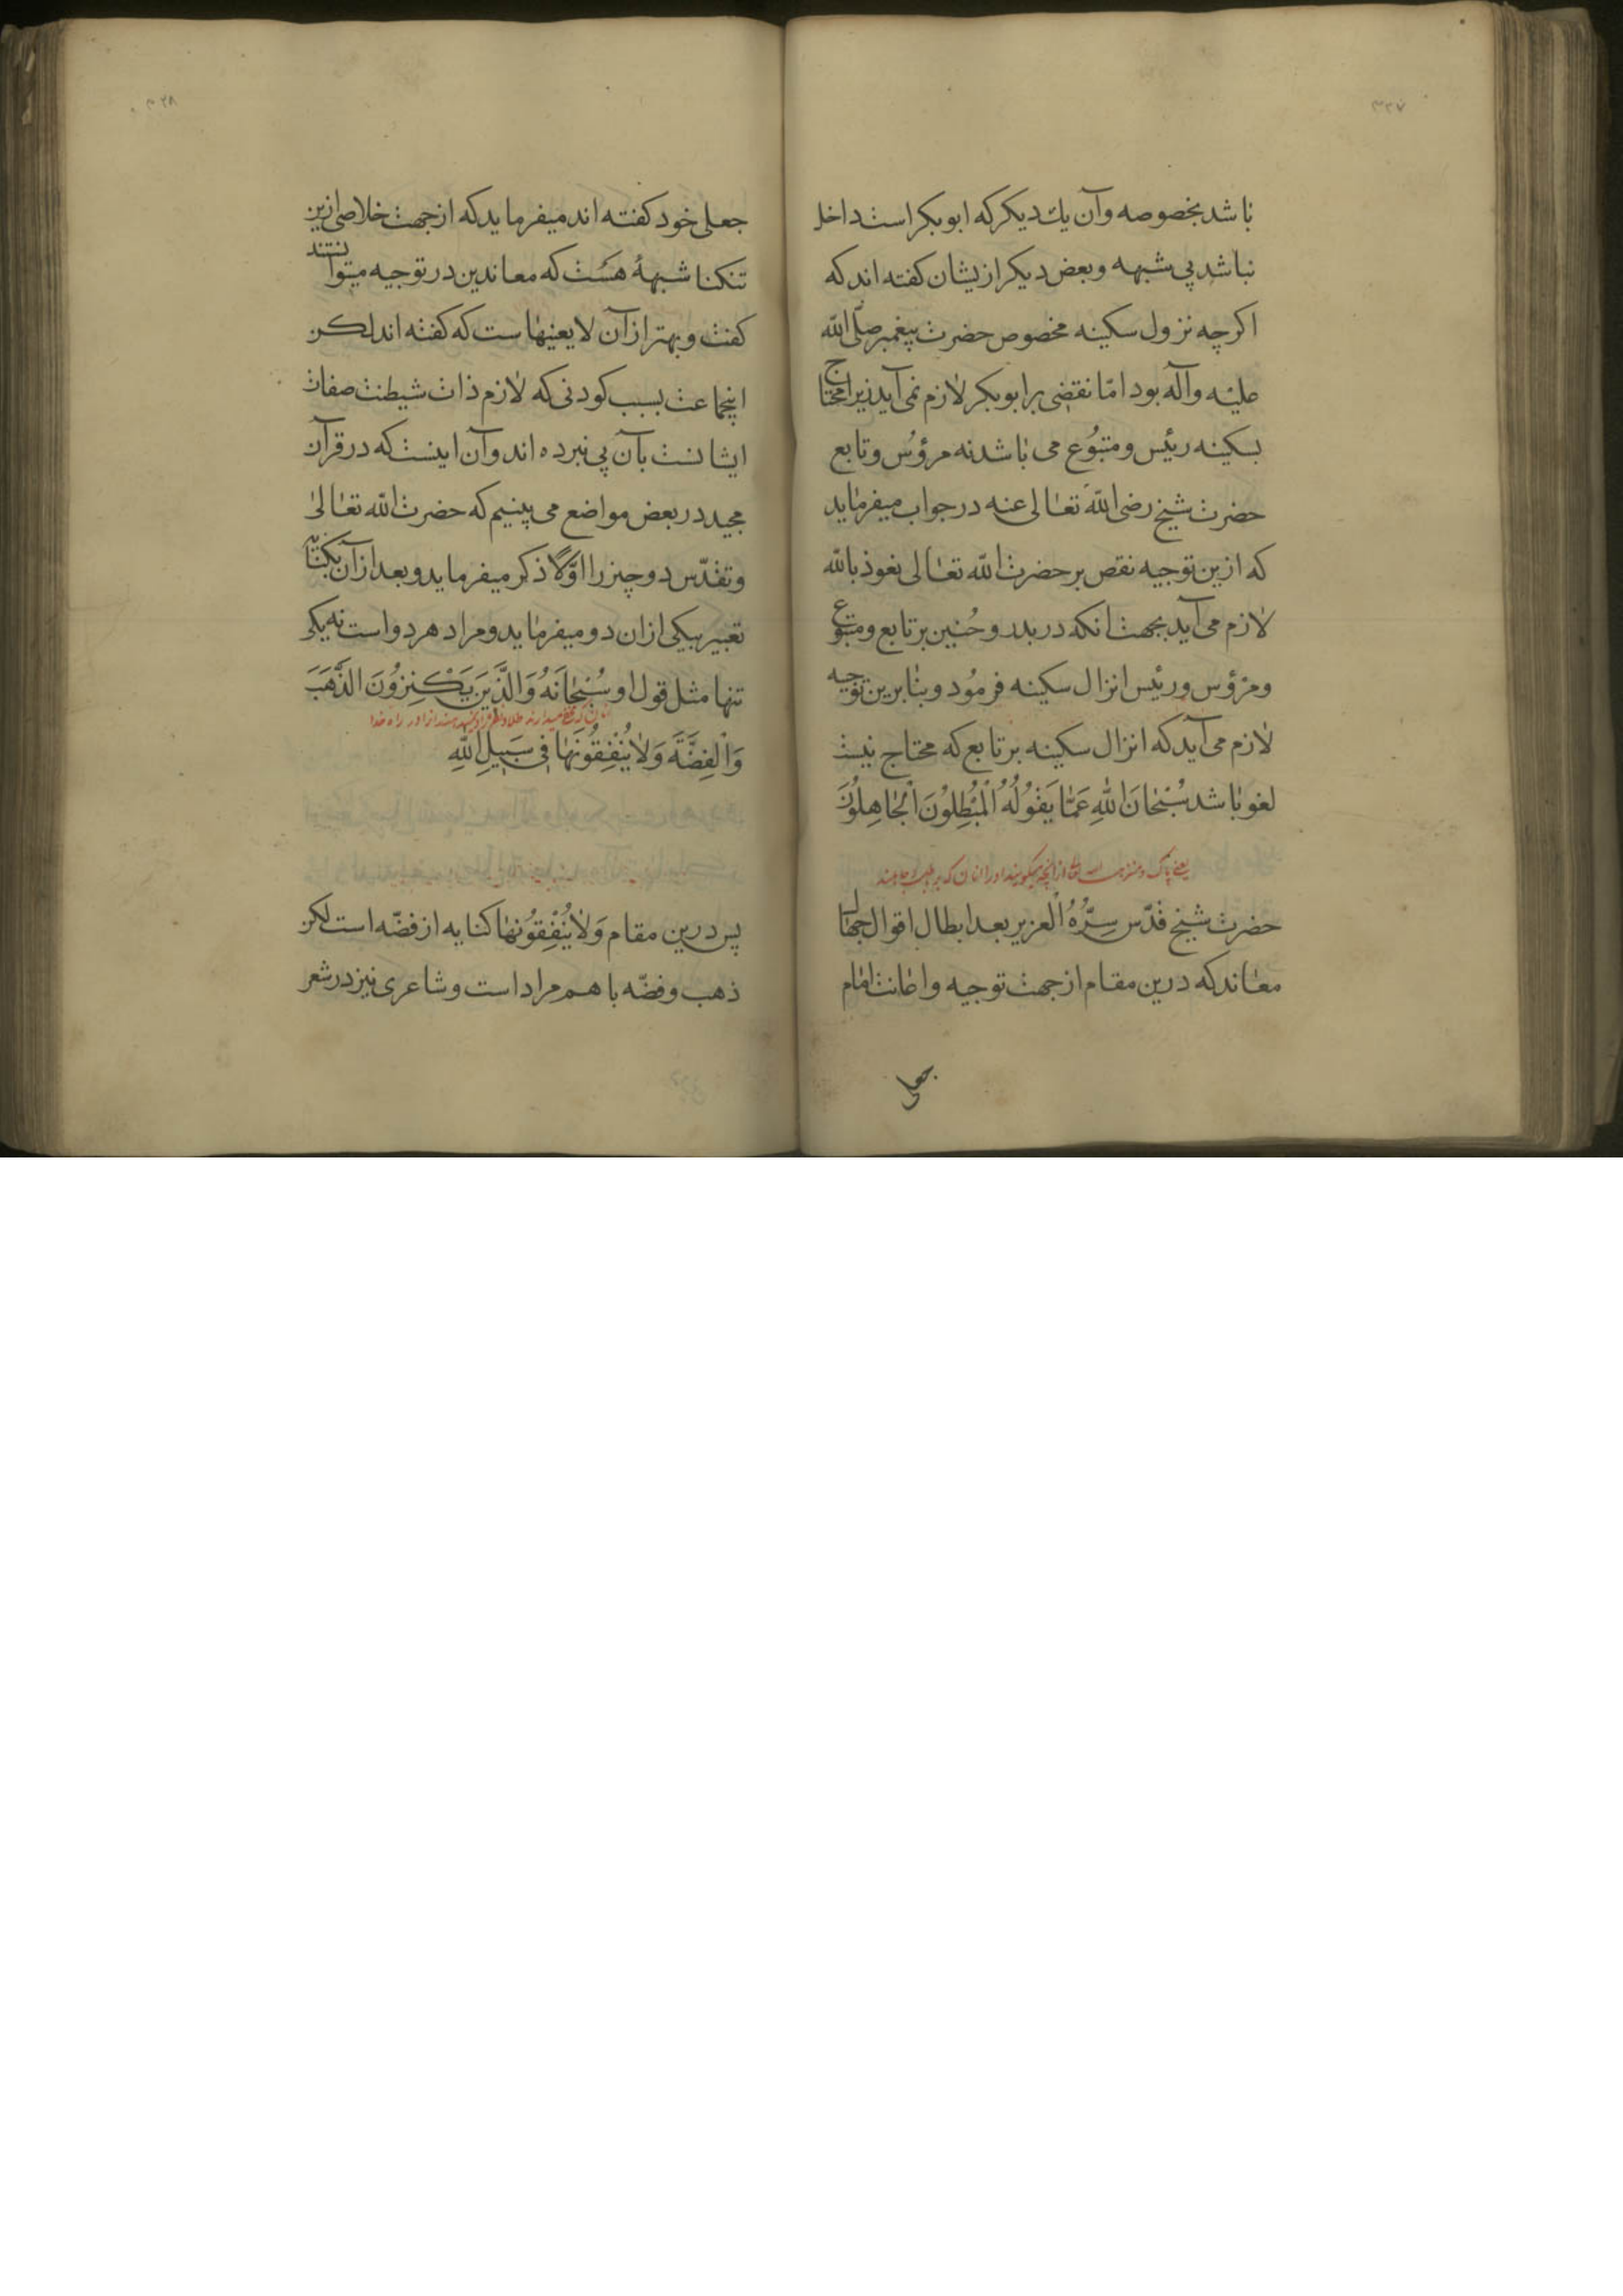 ۳۲۷
باشد بخصوصه وآن یك دیکر که ابوبکر است داخل
نباشد پی شبهه وبعض دیکر ازیشان کفته اند که
اکرچه نزول سکینه مخصوص حضرت پیغمبر صلّی الله
علیه وآله بود امّا نقضی بر ابوبکر لازم نمی آید زیرا محتاج
بسکینه رئیس ومتبوُع می باشد نه مرؤس وتابع
حضرت شیخ رضی الله تعالی عنه در جواب میفرماید
که ازین توجیه نقص بر حضرت الله تعالی نعوذ بالله
لازم می آید بجهت انکه در بدر وحُنین بر تابع ومتبوع
ومرؤس ورئیس انزال سکینه فرموُد وبنابرین توجیه
لازم می آید که انزال سکینه بر تابع که محتاج نیست
لغو باشد سُبْحَانَ اللهِ عَمَّا یَقُولُهُ الْمُبْطِلُونَ الْجَاهِلُونَ
یعنی پاک ومنزه است الله تعالی از آنچه میکویند اورا انان که بر باطل وجاهلند
حضرت شیخ قدّس سِرُّهُ العزیز بعد ابطال اقوال جهال
معاند که درین مقام از جهت توجیه واعانت امام
جعلی
۳۲۸
جعلی خود کفته اند میفرماید که از جهت خلاصی ازین
تنکنا شبههٔ هست که معاندین در توجیه میتوانستند
کفت وبهتر از آن لا یعنیهاست که کفته اند لکن
اینجماعت بسبب کودنی که لازم ذات شیطنت صفات
ایشانست بآن پی نبرده اند وآن اینست که در قرآن
مجید در بعض مواضع می بینیم که حضرت الله تعالی
وتقدّس دو چیز را اوّلاً ذکر میفرماید وبعد از آن بکنایه
تعبیر بیکی ازان دو میفرماید ومراد هر دو است نه یکی
تنها مثل قول او سُبْحَانَهُ وَالَّذِینَ یَکْنِزُونَ الذَّهَبَ
وَالْفِضَّةَ وَلَا یُنْفِقُونَهَا فِی سَبِیلِ اللهِ
پس درین مقام وَلَا یُنْفِقُونَهَا کنایه از فضّه است لکن
ذهب وفضّه با هم مراد است وشاعری نیز در شعر